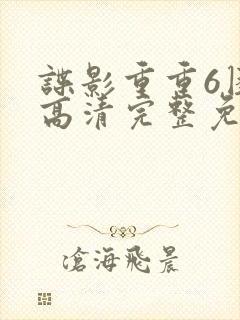 諜影重重6
高清完整免
滄海飛晨